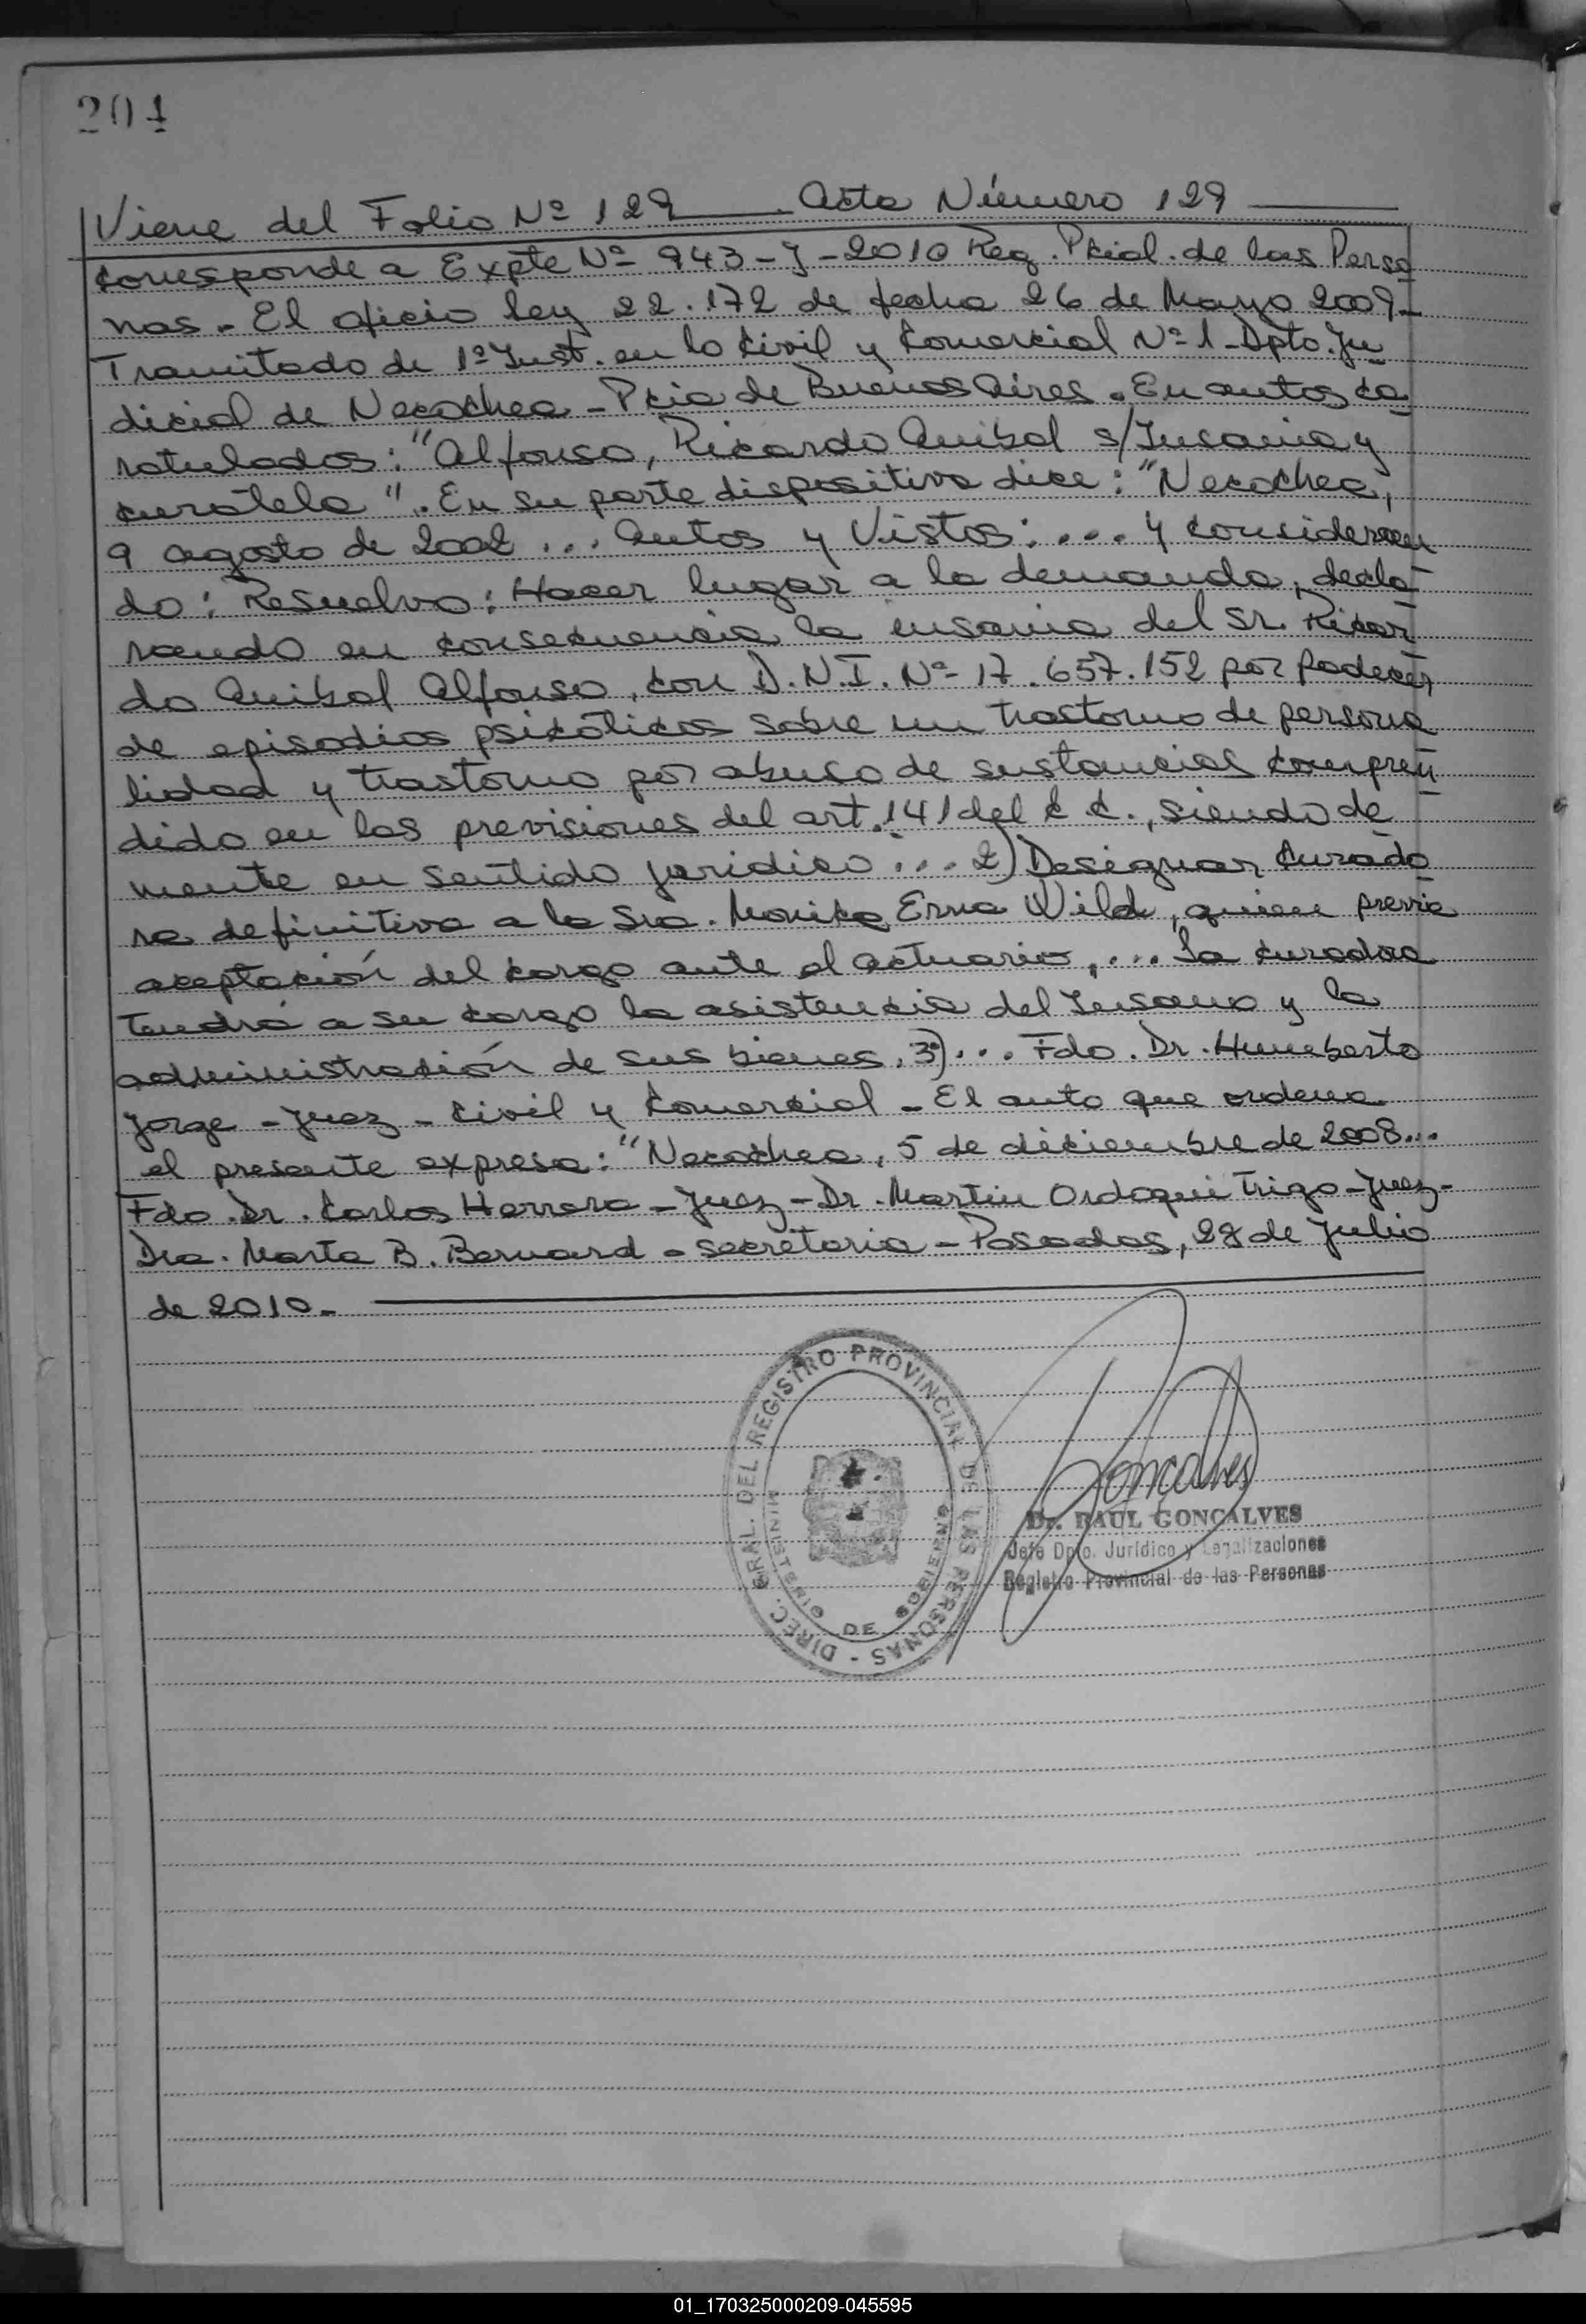 204
Viene del Folio Nº 129 Acta Número 129
corresponde a Expte Nº 943-J-2010 Reg. Pcial. de las Perso
nas.- El oficio ley 22.172 de fecha 26 de Mayo 2009-
Tramitado de 1º Inst. en lo Civil y Comercial Nº 1-Dpto. Ju
dicial de Necochea - Pcia de Buenos Aires. En autos ca
ratulados: "Alfonso, Ricardo Anibal s/Insania y
curatela". En su parte dispositiva dice: "Necochea,
9 agosto de 2002 ... Autos y Vistos: .... y consideran
do: Resuelvo: Hacer lugar a la demanda, decla
rando en consecuencia la insania del Sr. Ricar
do Anibal Alfonso, con D.N.I. Nº 17.657.152 por padecer
de episodios psicóticos sobre un trastorno de persona
lidad y trastorno por abuso de sustancias compren
dido en las previsiones del art. 141 del C.C., siendo de
mente en sentido jurídico ... 2) Designar Curado
ra definitiva a la Sra. Monica Erna Wild, quien previa
aceptación del cargo ante el actuario, ... La curadora
Tendrá a su cargo la asistencia del Insano y la
administración de sus bienes. 3º) ... Fdo. Dr. Humberto
Jorge - Juez - Civil y Comercial - El auto que ordena
el presente expresa: "Necochea, 5 de diciembre de 2008...
Fdo. Dr. Carlos Herrera - Juez - Dr. Martin Ordoqui Trigo - Juez -
Dra. Marta B. Bernard - secretaria - Posadas, 28 de Julio
de 2010.-
DIREC. GRAL. DEL REGISTRO PROVINCIAL DE LAS PERSONAS -
MINISTERIO DE GOBIERNO
Goncalves
Dr. RAUL GONCALVES
Jefe Dpto. Jurídico y Legalizaciones
Registro Provincial de las Personas
01_170325000209-045595